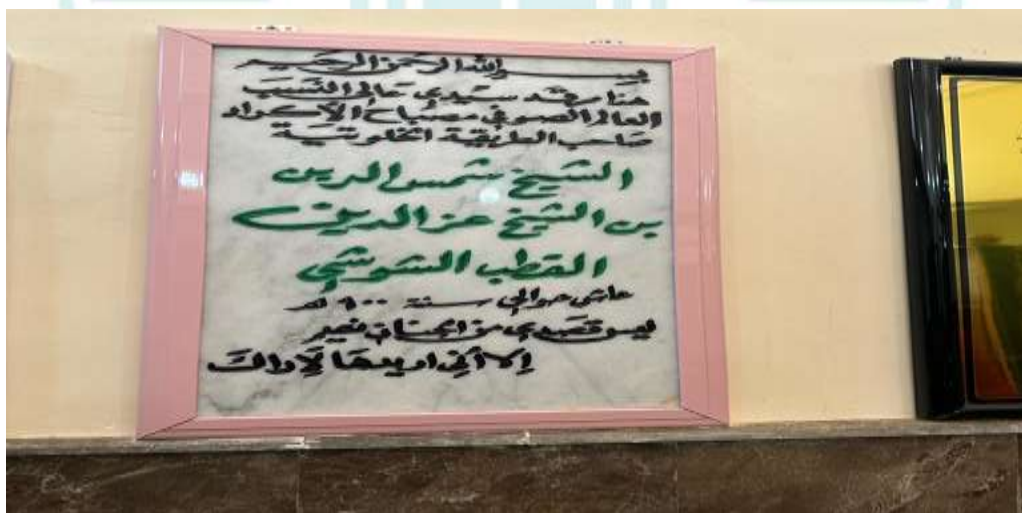 بسم الله الرحمن الرحيم
هنا يرقد سيدي عالي النسب
العالم الصوفي مصباح الأكراد
صاحب الطريقة الخلوتية
الشيخ شمس الدين
بن الشيخ عز الدين
القطب الشوشي
عاش حوالي سنة ٩٠٠ هـ
ليس قصدي من الجنان نعيم
إلا أني اريدها لأراك